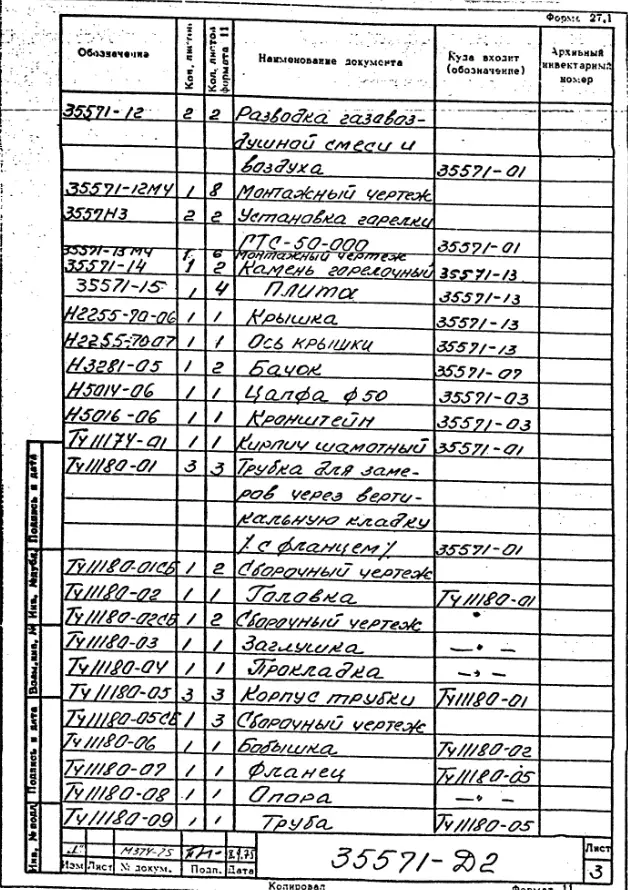 Форма 27.1
Обозначение Кол. листов Кол. листов формата 11 Наименование документа Куда входит (обозначение) Архивный инвентарный номер
35571-12 2 2 Разводка газовоз-
душной смеси и
воздуха 35571-01
35571-12МЧ 1 8 Монтажный чертеж
35571-13 2 2 Установка горелки
ГТС-50-000 35571-01
35571-13МЧ 1 6 Монтажный чертеж
35571-14 1 2 Камень горелочный 35571-13
35571-15 1 4 Плита 35571-13
Н2255-70-06 1 1 Крышка 35571-13
Н2255-7007 1 1 Ось крышки 35571-13
Н3281-05 1 2 Бачок 35571-07
Н5014-06 1 1 Цапфа ф50 35571-03
Н5016-06 1 1 Кронштейн 35571-03
Ту11174-01 1 1 Кирпич шамотный 35571-01
Ту11180-01 3 3 Трубка для заме-
ров через верти-
кальную кладку
/с фланцем/ 35571-01
Ту11180-01СБ 1 2 Сборочный чертеж
Ту11180-02 1 1 Головка Ту11180-01
Ту11180-02СБ 1 2 Сборочный чертеж "
Ту11180-03 1 1 Заглушка — " —
Ту11180-04 1 1 Прокладка — " —
Ту11180-05 3 3 Корпус трубки Ту11180-01
Ту11180-05СБ 1 3 Сборочный чертеж
Ту11180-06 1 1 Бобышка Ту11180-02
Ту11180-07 1 1 Фланец Ту11180-05
Ту11180-08 1 1 Опора — " —
Ту11180-09 1 1 Труба Ту11180-05
Инв. № подл. Подпись и дата Взам. инв. № Инв. № дубл. Подпись и дата
М374-75
Изм Лист № докум. Подп. Дата
35571-Д2
Лист
3
Копировал Формат 11